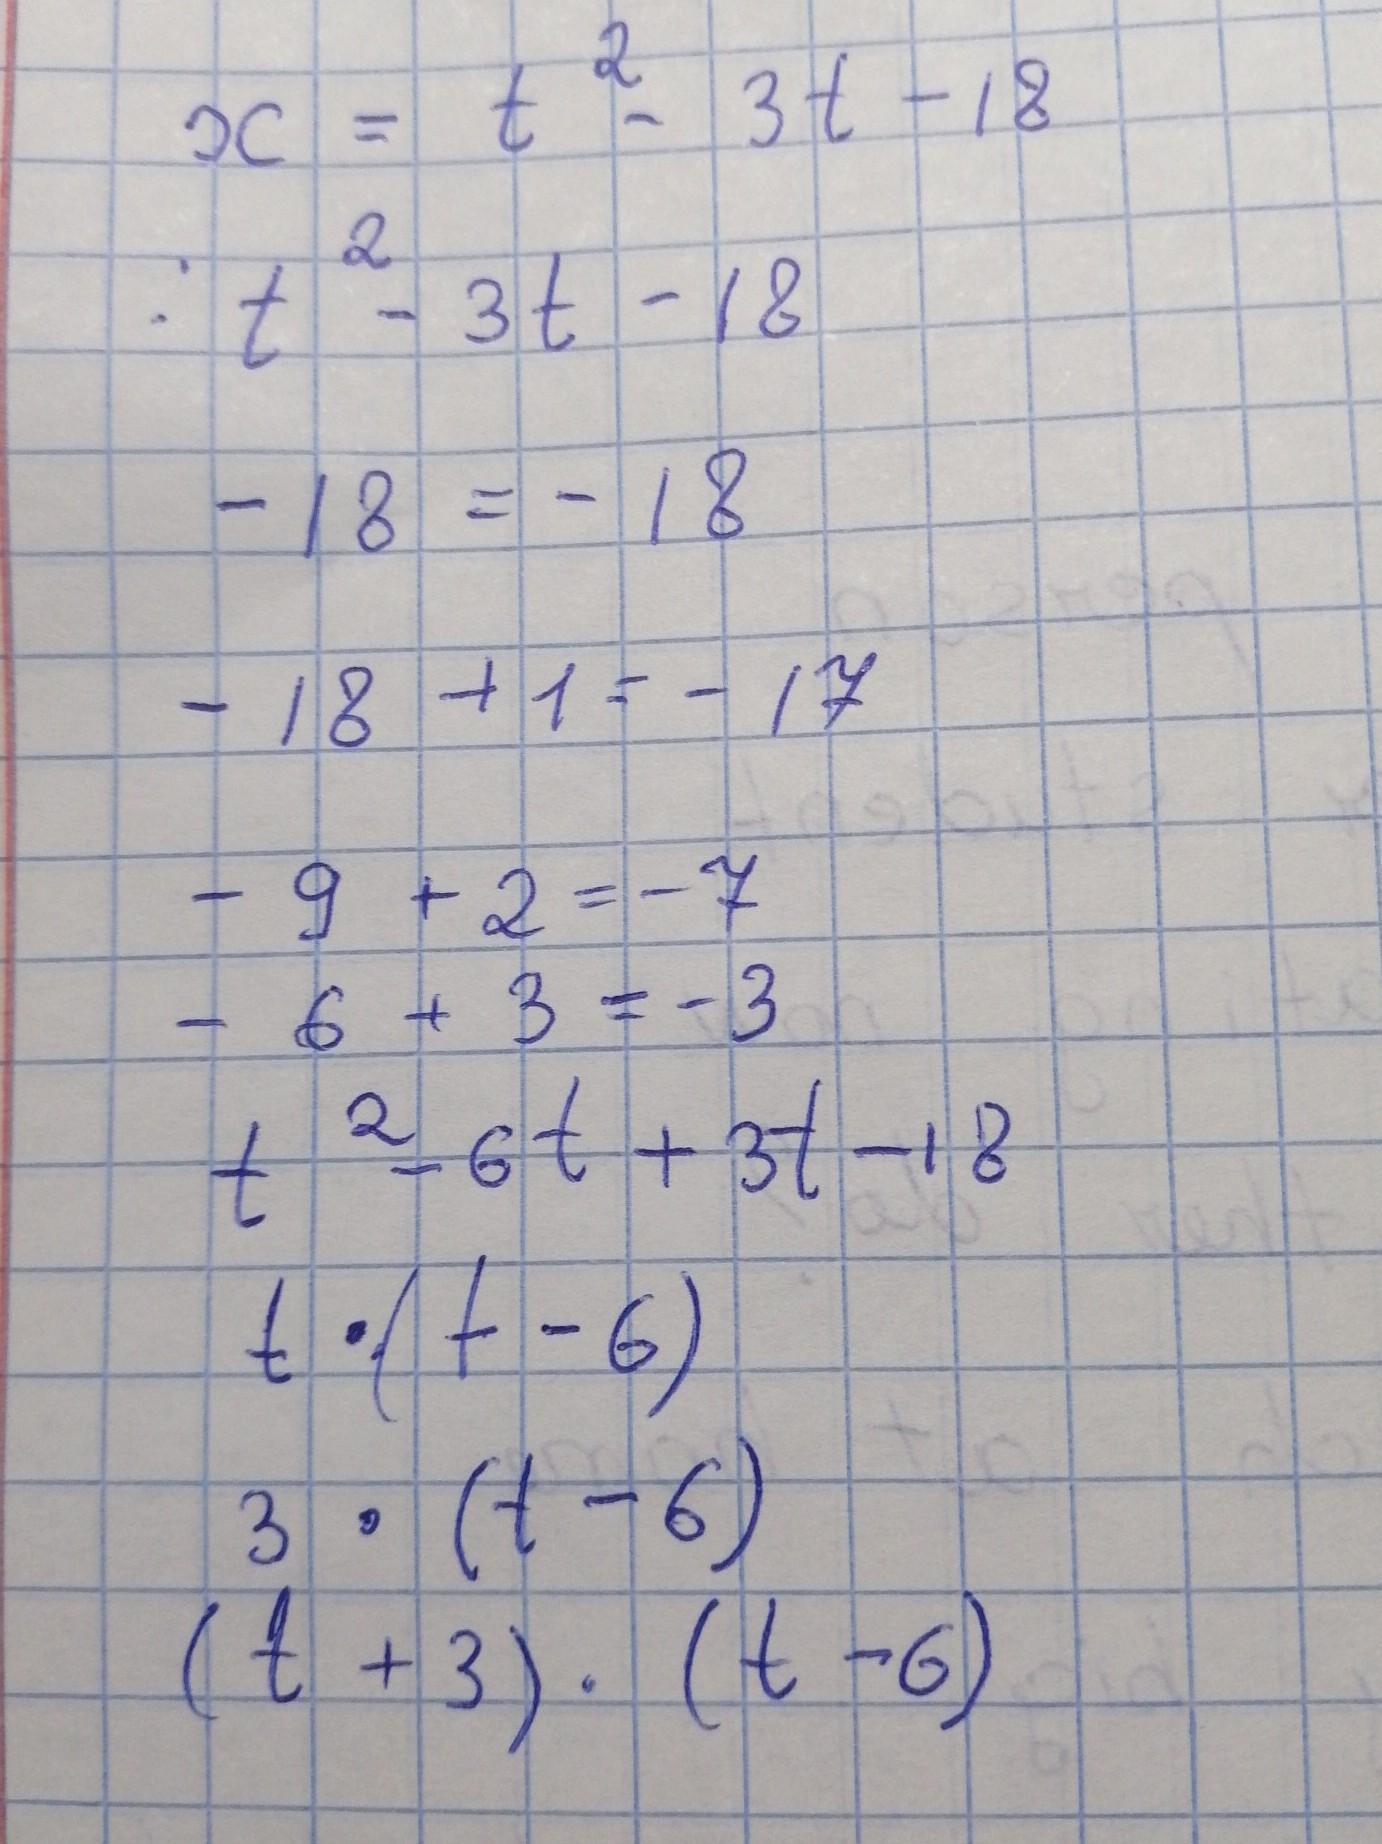 x = t² - 3t - 18
∴ t² - 3t - 18
- 18 = - 18
- 18 + 1 = - 17
- 9 + 2 = - 7
- 6 + 3 = - 3
t² - 6t + 3t - 18
t • (t - 6)
3 • (t - 6)
(t + 3) · (t - 6)